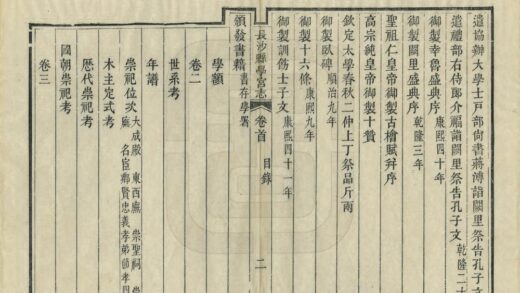 遣協辦大學士戶部尚書蔣溥詣闕里祭告孔子文
遣禮部右侍郎介福詣闕里祭告孔子文 乾隆二十
御製幸魯盛典序 康熙四十年
御製闕里盛典序 乾隆三年
聖祖仁皇帝御製古檜賦幷序
高宗純皇帝御製十贊
欽定太學春秋二仲上丁祭品斤兩
御製臥碑 順治九年
御製十六條 康熙九年
御製訓飭士子文 康熙四十一年
長沙縣學宮志 卷首 目錄 二
頒發書籍 書存學署
學額
卷二
世系考
年譜
崇祀位次 大成殿 東西廡 崇聖祠
廡 名宦鄉賢忠義孝弟節孝四
木主定式考
歷代崇祀考
國朝崇祀考
卷三